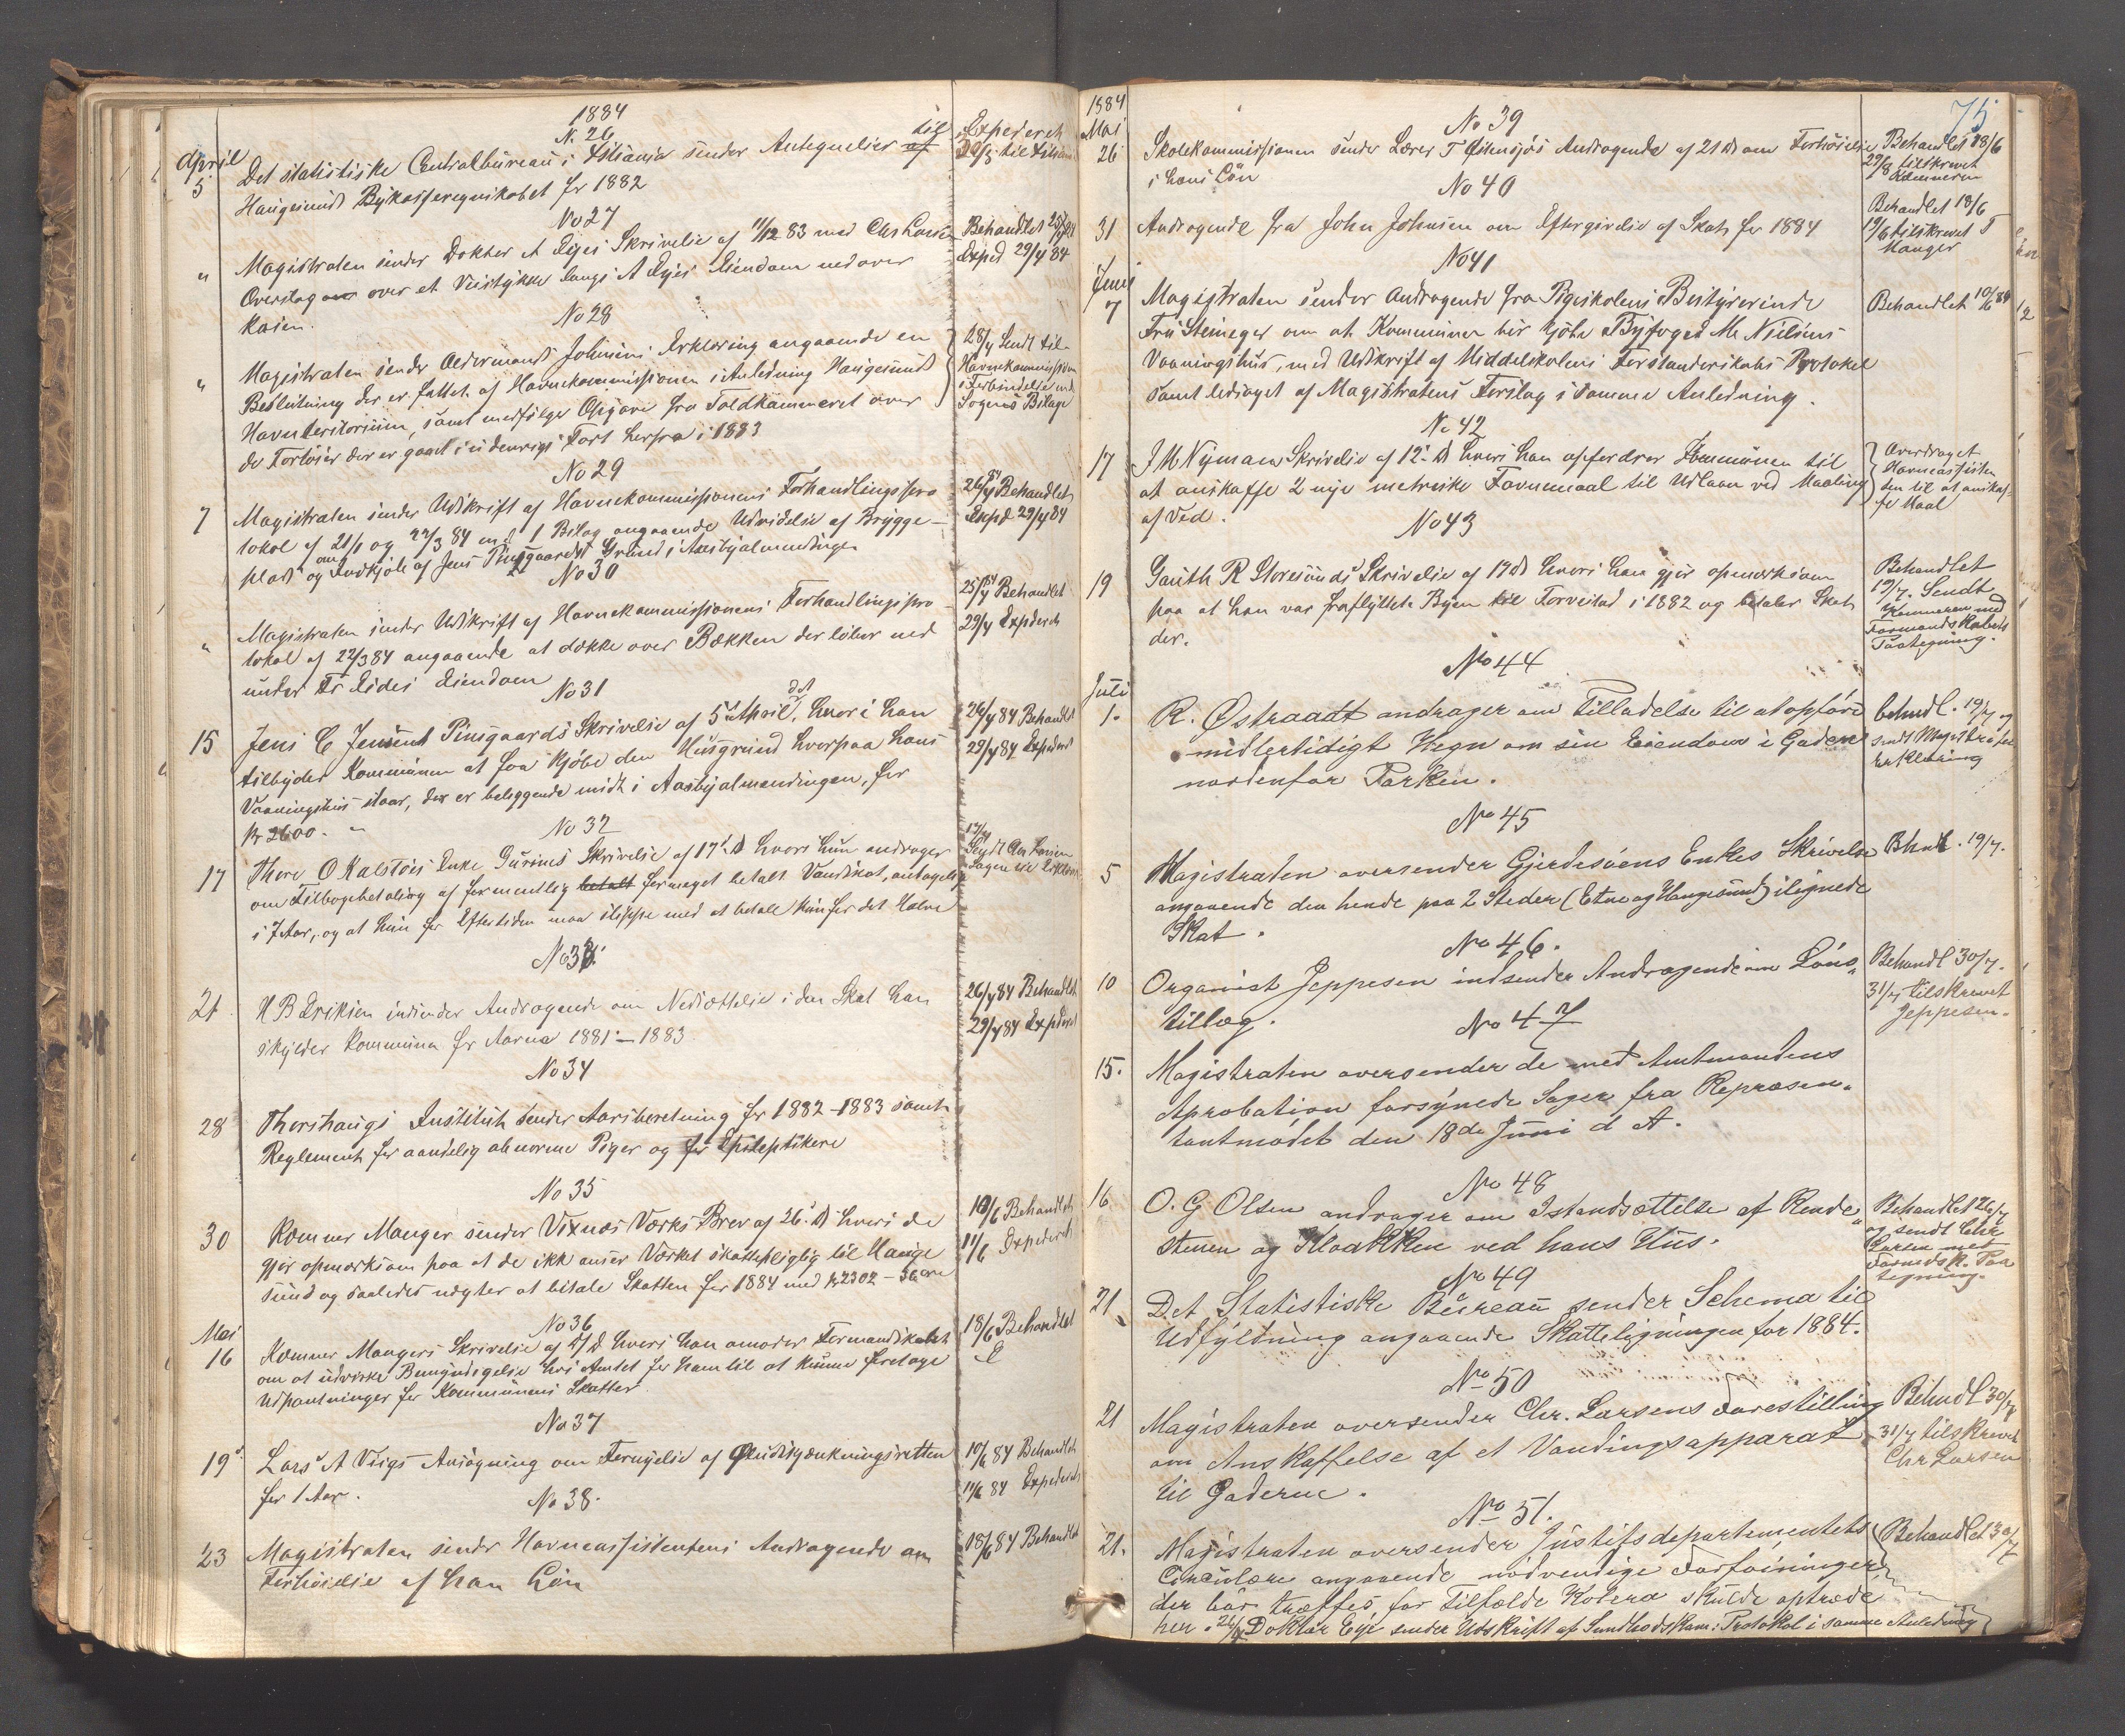 1884
No 26
April
5
Det statistiske Centralbureau i Xstiania sender Antegnelser af til
Haugesunds Bykasseregnskabet for 1882
Expederet
til
No 27
"
Magistraten sender Dokter A Eyes Skrivelse af 11/12 83 med Chr Larsen
Overslag over et Veistykke langs A Eyes Eiendom nedover
kaien.
Behandlet 25/4 84
Exped 29/4 84
No 28
"
Magistraten sender Oldermand Johnsens Erklæring angaaende en
Beslutning der er fattet af Havnekommissionen i Anledning Haugesunds
Havneteritorium, samt medfølger Opgave fra Toldkammeret over
de Fartøier der er gaaet i udenrigs Fart herfra i 1883
28/4 Sendt til
Havnekommissionen
i Forbindelse med
Sagens Bilage
No 29
7
Magistraten sender Udskrift af Havnekommissionens Forhandlingspro
tokol af 21/1 og 22/3 84 med 1 Bilag angaaende Udvidelse af Brygge-
plads og om Indkjøb af Jens Pinsgaards Grund i Aasbyalmendingen
26/4 Behandlet
Expd 29/4 84
No 30
"
Magistraten sender Udskrift af Havnekommissionens Forhandlingspro
tokol af 22/3 84 angaaende at dække over Bækken der løber ned
under Fr Eides Eiendom
25/4 Behandlet
29/4 Expederet
No 31
15
Jens C Jensens Pinsgaards Skrivelse af 5 April, hvori han
tilbyder Kommunen at faa kjøbe den Husgrund hvorpaa hans
Vaaningshus staar, der er beliggende midt i Aasbyalmendingen, for
kr 2600. "
26/4 84 Behandlet
29/4 84 Expederet
No 32
17
Thore O Kalstøes Enke Gurines Skrivelse af 17' ds hvori hun andrager
om Tilbagebetaling af formentlig betalt formeget betalt Vandskat, antagelig
i 7 Aar, og at hun for Eftertiden maa slippe med at betale kun for det Halve
17/4
Sendt Chr Larsen
Sagen til Erklæring
No 33.
21
H B Eriksen indsender Andragende om Nedsættelse i den Skat han
skylder Kommunen for Aarene 1881 - 1883
26/4 84 Behandlet
29/4 84 Expederet
No 34
28
Thorshaugs Institut sender Aarsberetning for 1882-1883 samt
Reglement for aandelig abnorme Piger og for Epileptikere
No 35
30
Kæmner Manger sender Vixnæs Værks Brev af 26' ds hvori de
gjør opmærksom paa at de ikke anser Værket skattepligtig til Hauge
sund og saaledes nægter at betale Skatten for 1884 med kr 2302 - 36 øre
10/6 Behandlet
11/6 Expederet
No 36
Mai
16
Kæmner Mangers Skrivelse af d hvori han anmoder Formandskabet
om at udvirke Bemyndigelse hos Amtet for ham til at kunne foretage
Udpantninger for Kommunens Skatter
18/6 Behandlet
E
No 37
19
Lars A Viigs Ansøgning om Fornyelse af Øludskjænkningsretten
for 1 Aar.
10/6 84 Behandlet
11/6 84 Expederet
No 38.
23
Magistraten sender Havneassistentens Andragende om
Forhøielse af han Løn
18/6 84 Behandlet
75
1884
Mai
26
No 39
Skolekommissionen sender Lærer T Østensjøs Andragende af 21 ds om Forhøielse
i hans Løn
Behandlet 18/6
27/8 tilskrevet
Kæmneren
No 40
31
Andragende fra John Johnsen om Eftergivelse af Skat for 1884
Behandlet 18/6
19/6 tilskrevet T
Manger
No 41
Juni
7
Magistraten sender Andragende fra Pigeskolens Bestyrerinde
Fru Steineger om at Kommunen bør kjøbe Byfoged M. Nielsens
Vaaningshus, med Udskrift af Middelskolens Forstanderskabs Protokol
samt ledsaget af Magistratens Forslag i samme Anledning.
Behandlet 10/6 84
No 42
17
J M Nymans Skrivelse af 12' ds hvori han opfordrer Kommunen til
at anskaffe 2 nye metriske Favnemaal til Udlaan ved Maaling
af Ved.
Overdraget
Havneassisten
ten til at anskaf-
fe Maal
No 43
19
Gauth R Storesunds Skrivelse af 17 ds hvori han gjør opmærksom
paa at han var fraflyttet Byen til Torvestad i 1882 og betaler Skat
der.
Behandlet
19/7. Sendt
Kæmneren med
Formandskabets
Paategning.
No 44
Juli
1.
R. Østraadt andrager om Tilladelse til at opføre
midlertidigt Hegn om sin Eiendom i Gaden
nordenfor Parken.
Behndl. 19/7 og
sendt Magistrats
Erklæring
No 45
5
Magistraten oversender Gjerdesøens Enkes Skrivelse
angaaende den hende paa 2 Steder (Etne og Haugesund) ilignede
Skat.
Bhndl. 19/7.
No 46.
10
Organist Jeppesen indsender Andragende om Løns-
tillæg.
Behandl 30/7.
31/7 tilskrevet
Jeppesen.
No 47
15.
Magistraten oversender de med Amtmandens
Aprobation forsynede Sager fra Repræsen-
tantmødet den 18de Juni d A.
No 48
16
O. G Olsen andrager om Istandsættelse af Rende-
stenen og Kloakken ved hans Hus.
Behandlet 26/7
og sendt Chr
Larsen med
Formdsk. Paa
tegning.
No 49
21
Det Statistiske Bureau sender Schema til
Udfyldning angaaende Skatteligningen for 1884.
No 50
21
Magistraten oversender Chr. Larsens Forestilling
om Anskaffelse af et Vandingsapparat
til Gaderne.
Behndl 30/7
31/7 tilskrevet
Chr Larsen
No 51.
21.
Magistraten oversender Justitsdepartementets
Cirkulære angaaende nødvendige Forføininger
der bør træffes for Tilfælde Kolera skulde optræde
her. 26/7 Doktor Eye sender Udskrift af Sundhedskom: Protokol i samme Anledning
Behandlet 30/7